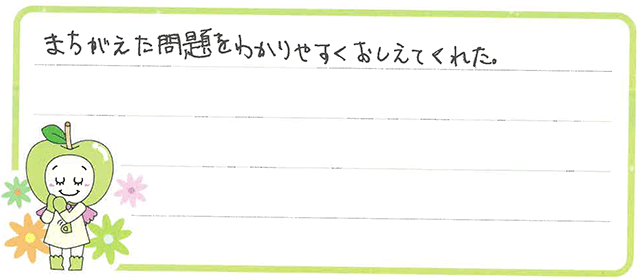 まちがえた問題をわかりやすくおしえてくれた。